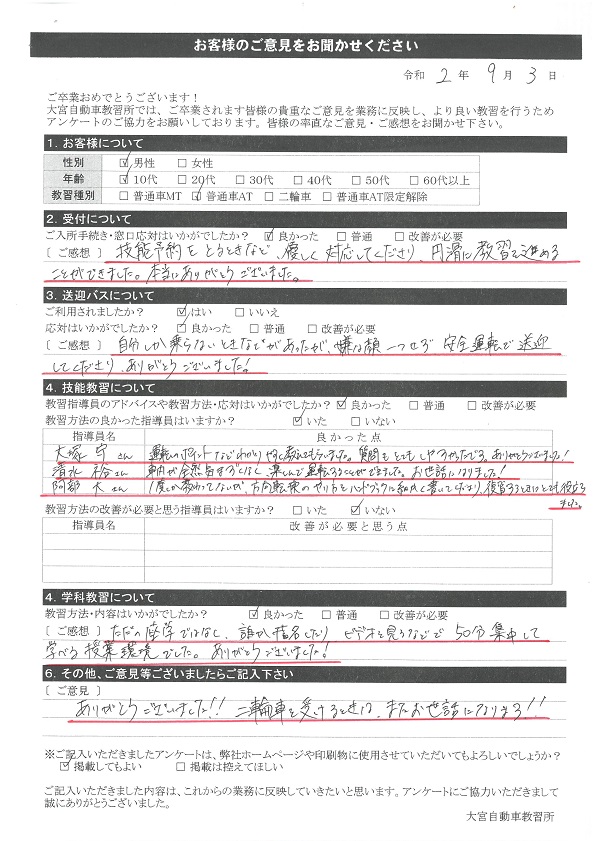 お客様のご意見をお聞かせください
令和 2 年 9 月 3 日
ご卒業おめでとうございます!
大宮自動車教習所では、ご卒業されます皆様の貴重なご意見を業務に反映し、より良い教習を行うため
アンケートのご協力をお願いしております。皆様の率直なご意見・ご感想をお聞かせ下さい。
1. お客様について
性別 ☑男性 □女性
年齢 ☑10代 □20代 □30代 □40代 □50代 □60代以上
教習種別 □普通車MT ☑普通車AT □二輪車 □普通車AT限定解除
2. 受付について
ご入所手続き・窓口応対はいかがでしたか? ☑良かった □普通 □改善が必要
[ご感想] 技能予約をとるときなど、優しく対応してくださり、円滑に教習を進める
ことができました。本当にありがとうございました。
3. 送迎バスについて
ご利用されましたか? ☑はい □いいえ
応対はいかがでしたか? ☑良かった □普通 □改善が必要
[ご感想] 自分しか乗らないときなどがあったが、嫌な顔一つせず、安全運転で送迎
してくださり、ありがとうございました!
4. 技能教習について
教習指導員のアドバイスや教習方法・応対はいかがでしたか? ☑良かった □普通 □改善が必要
教習方法の良かった指導員はいますか? ☑いた □いない
指導員名 良かった点
大塚 守さん 運転のポイントなどわかりやすく教えてもらいました。質問もとてもしやすかったです。ありがとうございました!
清水 裕さん 車内が全然気まずくなく、楽しんで運転することができました。お世話になりました!
阿部 大さん 1度しか教わってないが、方向転換のやり方をハンドブックに細かく書いてくださり、復習するときにとても役立ち
ました。
教習方法の改善が必要と思う指導員はいますか? □いた ☑いない
指導員名 改善が必要と思う点
4. 学科教習について
教習方法・内容はいかがでしたか? ☑良かった □普通 □改善が必要
[ご感想] ただの座学ではなく、誰か指名したり ビデオを見るなどで 50分集中して
学べる授業環境でした。ありがとうございました!
6. その他、ご意見等ございましたらご記入下さい
[ご意見]
ありがとうございました!! 二輪車を受けるときは、またお世話になります!!
※ご記入いただきましたアンケートは、弊社ホームページや印刷物に使用させていただいてもよろしいでしょうか?
☑掲載してもよい □掲載は控えてほしい
ご記入いただきました内容は、これからの業務に反映していきたいと思います。アンケートにご協力いただきまして
誠にありがとうございました。
大宮自動車教習所